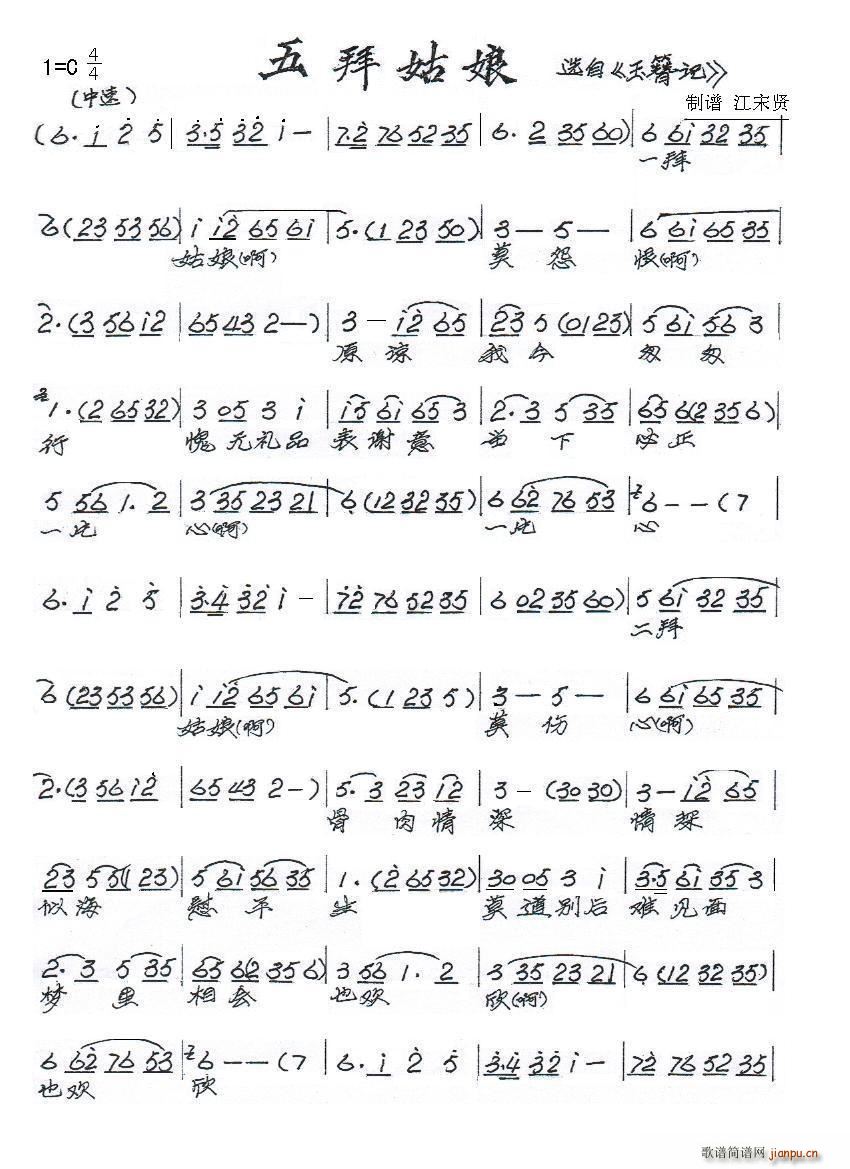 五拜姑娘 选自《玉簪记》
1=C 4/4
(中速)
制谱 江宋贤
(6. i 2 5 | 3.5 32 i — | 7.2 76 52 35 | 6. 2 35 60) | 6 6i 32 35 |
一拜
6 (23 53 56) | i i2 65 6i | 5. (1 23 50) | 3 — 5 — | 6 6i 65 35 |
姑娘(啊) 莫怨 恨(啊)
2. (3 56 i2 | 65 43 2 —) | 3 — i2 65 | 23 5 (01 23) | 5 6i 56 3 |
原谅 我今 匆匆
1. (2 65 32) | 3 05 3 i | i5 6i 65 3 | 2. 3 5 35 | 65 6 (2 35 6) |
行 愧无礼品 表谢意 当下 必正
5 56 1. 2 | 3 35 23 21 | 6 (12 32 35) | 6 62 76 53 | 6 — — (7 |
一片 心(啊) 一片 心
6. i 2 5 | 3.4 32 i — | 72 76 52 35 | 6 02 35 60) | 5 6i 32 35 |
二拜
6 (23 53 56) | i i2 65 6i | 5. (1 23 5) | 3 — 5 — | 6 6i 65 35 |
姑娘(啊) 莫伤 心(啊)
2. (3 56 i2 | 65 43 2 —) | 5. 3 23 i2 | 3 — (30 30) | 3 — i2 65 |
骨肉情 深 情深
23 5 5 (i 23) | 5 6i 56 35 | 1. (2 65 32) | 30 05 3 i | 3.5 6i 35 3 |
似海 慰平 生 莫道别后 难见面
2. 3 5 35 | 65 6 (2 35 6) | 3 56 1. 2 | 3 35 23 21 | 6 (12 32 35) |
梦里 相会 也欢 欣(啊)
6 62 76 53 | 6 — — (7 | 6. i 2 5 | 3.4 32 i — | 72 76 52 35 |
也欢 欣
歌谱简谱网
jianpu.cn